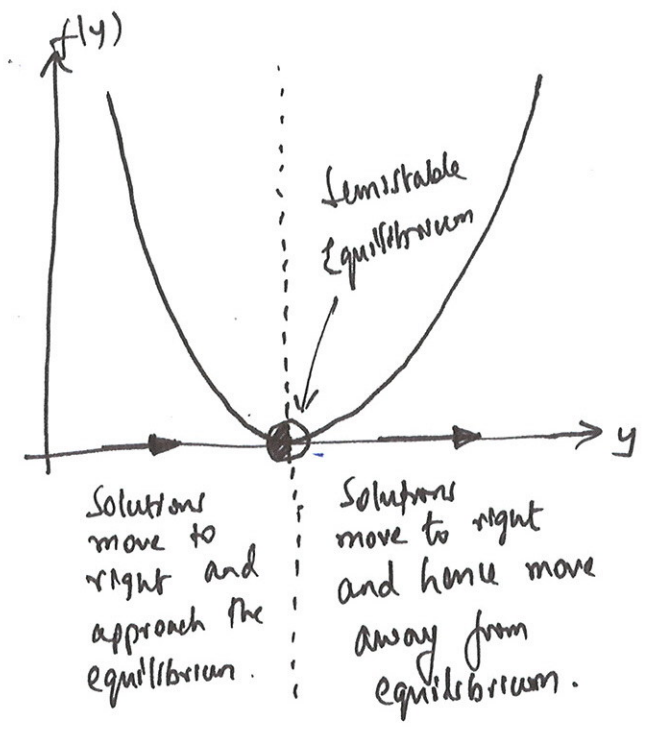 f(y)
Semistable
Equilibrium
y
Solutions
move to
right and
approach the
equilibrium.
Solutions
move to right
and hence move
away from
equilibrium.